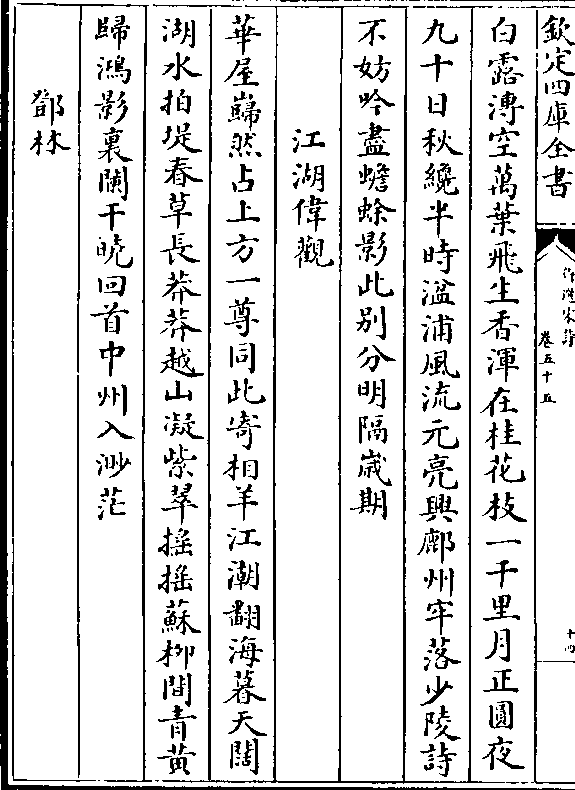 欽定四庫全書
御選宋詩
卷五十五
十四
白露漙空萬葉飛生香渾在桂花枝一千里月正圓夜
九十日秋纔半時湓浦風流元亮興鄜州牢落少陵詩
不妨吟盡蟾蜍影此别分明隔嵗期
江湖偉觀
華屋巋然占上方一尊同此寄相羊江潮翻海暮天闊
湖水拍堤春草長莽莽越山凝紫翠摇摇蘇柳間青黄
歸鴻影裏闌干曉回首中州入渺茫
鄧林